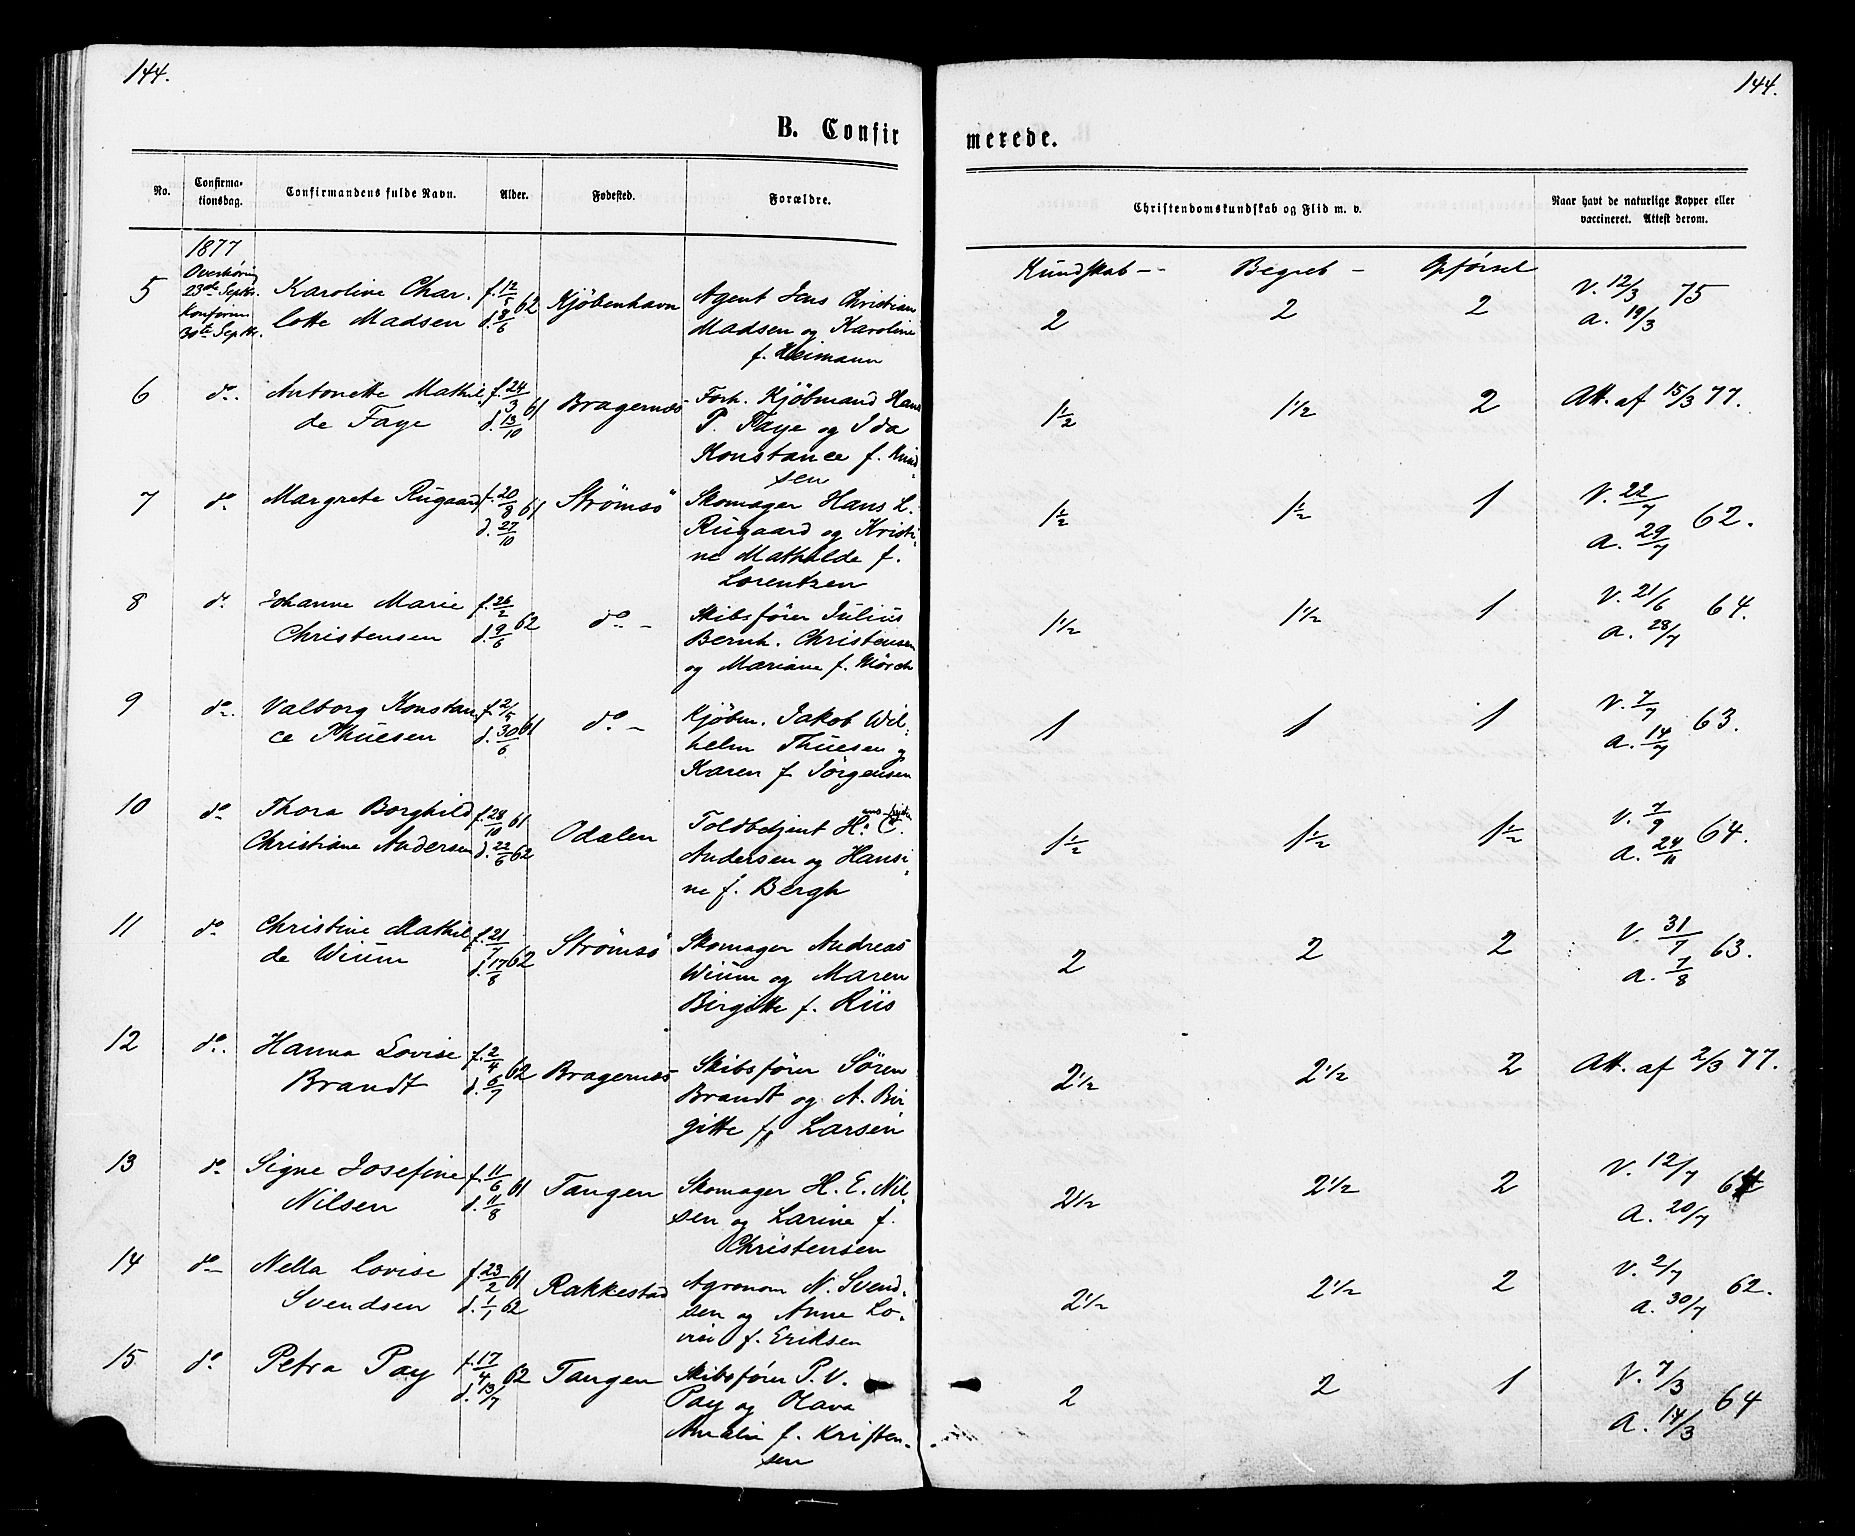 144.
144.
B. Confir
merede.
No.
Confirma-
tionsdag.
Confirmandens fulde Navn.
Alder.
Fødested.
Forældre.
Christendomskundskab og Flid m. v.
Naar havt de naturlige Kopper eller
vaccineret. Attest derom.
1877
Overhöring
23de Septbr.
Konform.
30te Septbr.
Kundskab -
Begreb -
Opførsel
5
Karoline Char-
lotte Madsen
f. 12/5 62
d. 8/6
Kjöbenhavn
Agent Jens Christian
Madsen og Karoline
f. Heimann
2
2
2
V. 12/3 75
a. 19/3
6
do.
Antonette Mathil
de Faye
f. 24/3 61
d. 13/10
Bragernæs
Forh. Kjöbmand Hans
P. Faye og Ida
Konstance f. Knud-
sen
1½
1½
2
Att. af 15/3 77.
7
do
Margrete Rugaard
f. 20/8 61
d. 27/10
Strömsö
Skomager Hans L.
Rugaard og Kristi-
ne Mathilde f.
Lorentzen
1½
1½
1
V. 22/7 62.
a. 29/7
8
do
Johanne Marie
Christensen
f. 26/2 62
d. 9/6
do -
Skibsfører Julius
Bernh. Christensen
og Mariane f. Mörch
1½
1½
1
V. 21/6 64.
a. 28/7
9
do.
Valborg Konstan
ce Thuesen
f. 2/5 61
d. 30/6
do -
Kjöbm. Jakob Wil-
helm Thuesen og
Karen f. Jörgensen
1
1
1
V. 7/7 63.
a. 14/7
10
do
Thora Borghild
Christiane Andersen
f. 28/10 61
d. 22/6 62
Odalen
Toldbetjent H. C.
Andersen og Hansi-
ne f. Bergh
1½
1½
1½
V. 7/9 64.
a. 24/11
11
do
Christine Mathil
de Wium
f. 21/7 62
d. 17/8
Strömsö
Skomager Andreas
Wium og Maren
Birgitte f. Riis
2
2
2
V. 31/7 63.
a. 7/8
12
do.
Hanna Lovise
Brandt
f. 2/4 62
d. 6/7
Bragernæs
Skibsfører Sören
Brandt og A. Bir
gitte f. Larsen
2½
2½
2
Att. af 2/3 77.
13
do
Signe Josefine
Nilsen
f. 11/6 61
d. 11/8
Tangen
Skomager H. E. Nil-
sen og Larine f.
Christensen
2½
2½
2
V. 12/7 64
a. 20/7
14
do
Nella Lovise
Svendsen
f. 23/2 61
d. 1/1 62
Rakkestad
Agronom N. Svend-
sen og Anne Lo-
vise f. Eriksen
2½
2½
2
V. 2/7 62.
a. 30/7
15
do
Petra Pay
f. 17/4 62
d. 13/7
Tangen
Skibsfører P. V.
Pay og Olava
Amalie f. Kristen-
sen
2
2
1
V. 7/3 64
a. 14/3